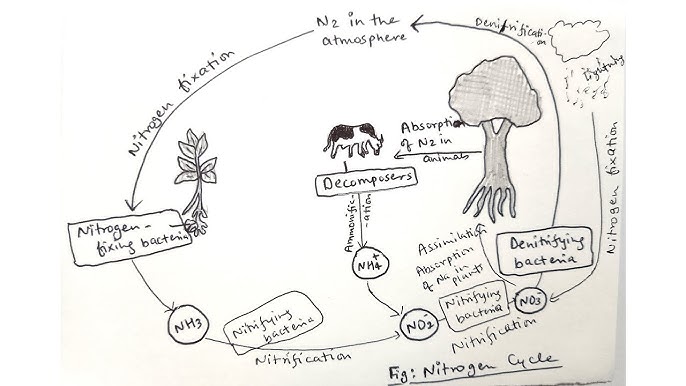 N2 in the
atmosphere
Denitrificati-
on
Lightning
Nitrogen fixation
Nitrogen fixation
Absorption
of N2 in
animals
Decomposers
Ammonific-
ation
Nitrogen-
fixing bacteria
Assimilation
Absorption
of Na in
plants
Denitrifying
bacteria
NH4+
NH3
Nitrifying
bacteria
Nitrification
NO2-
Nitrifying
bacteria
NO3-
Nitrification
Fig: Nitrogen Cycle